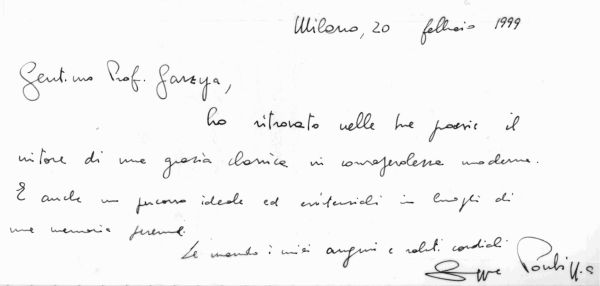 Milano, 20 febbraio 1999
Gent.mo Prof. Garzya,
ho ritrovato nelle tre poesie il
nitore di una grazia classica in consapevolezza moderna.
È anche un percorso ideale ed esistenziale in luoghi di
una memoria perenne.
Le mando i miei auguri e saluti cordiali